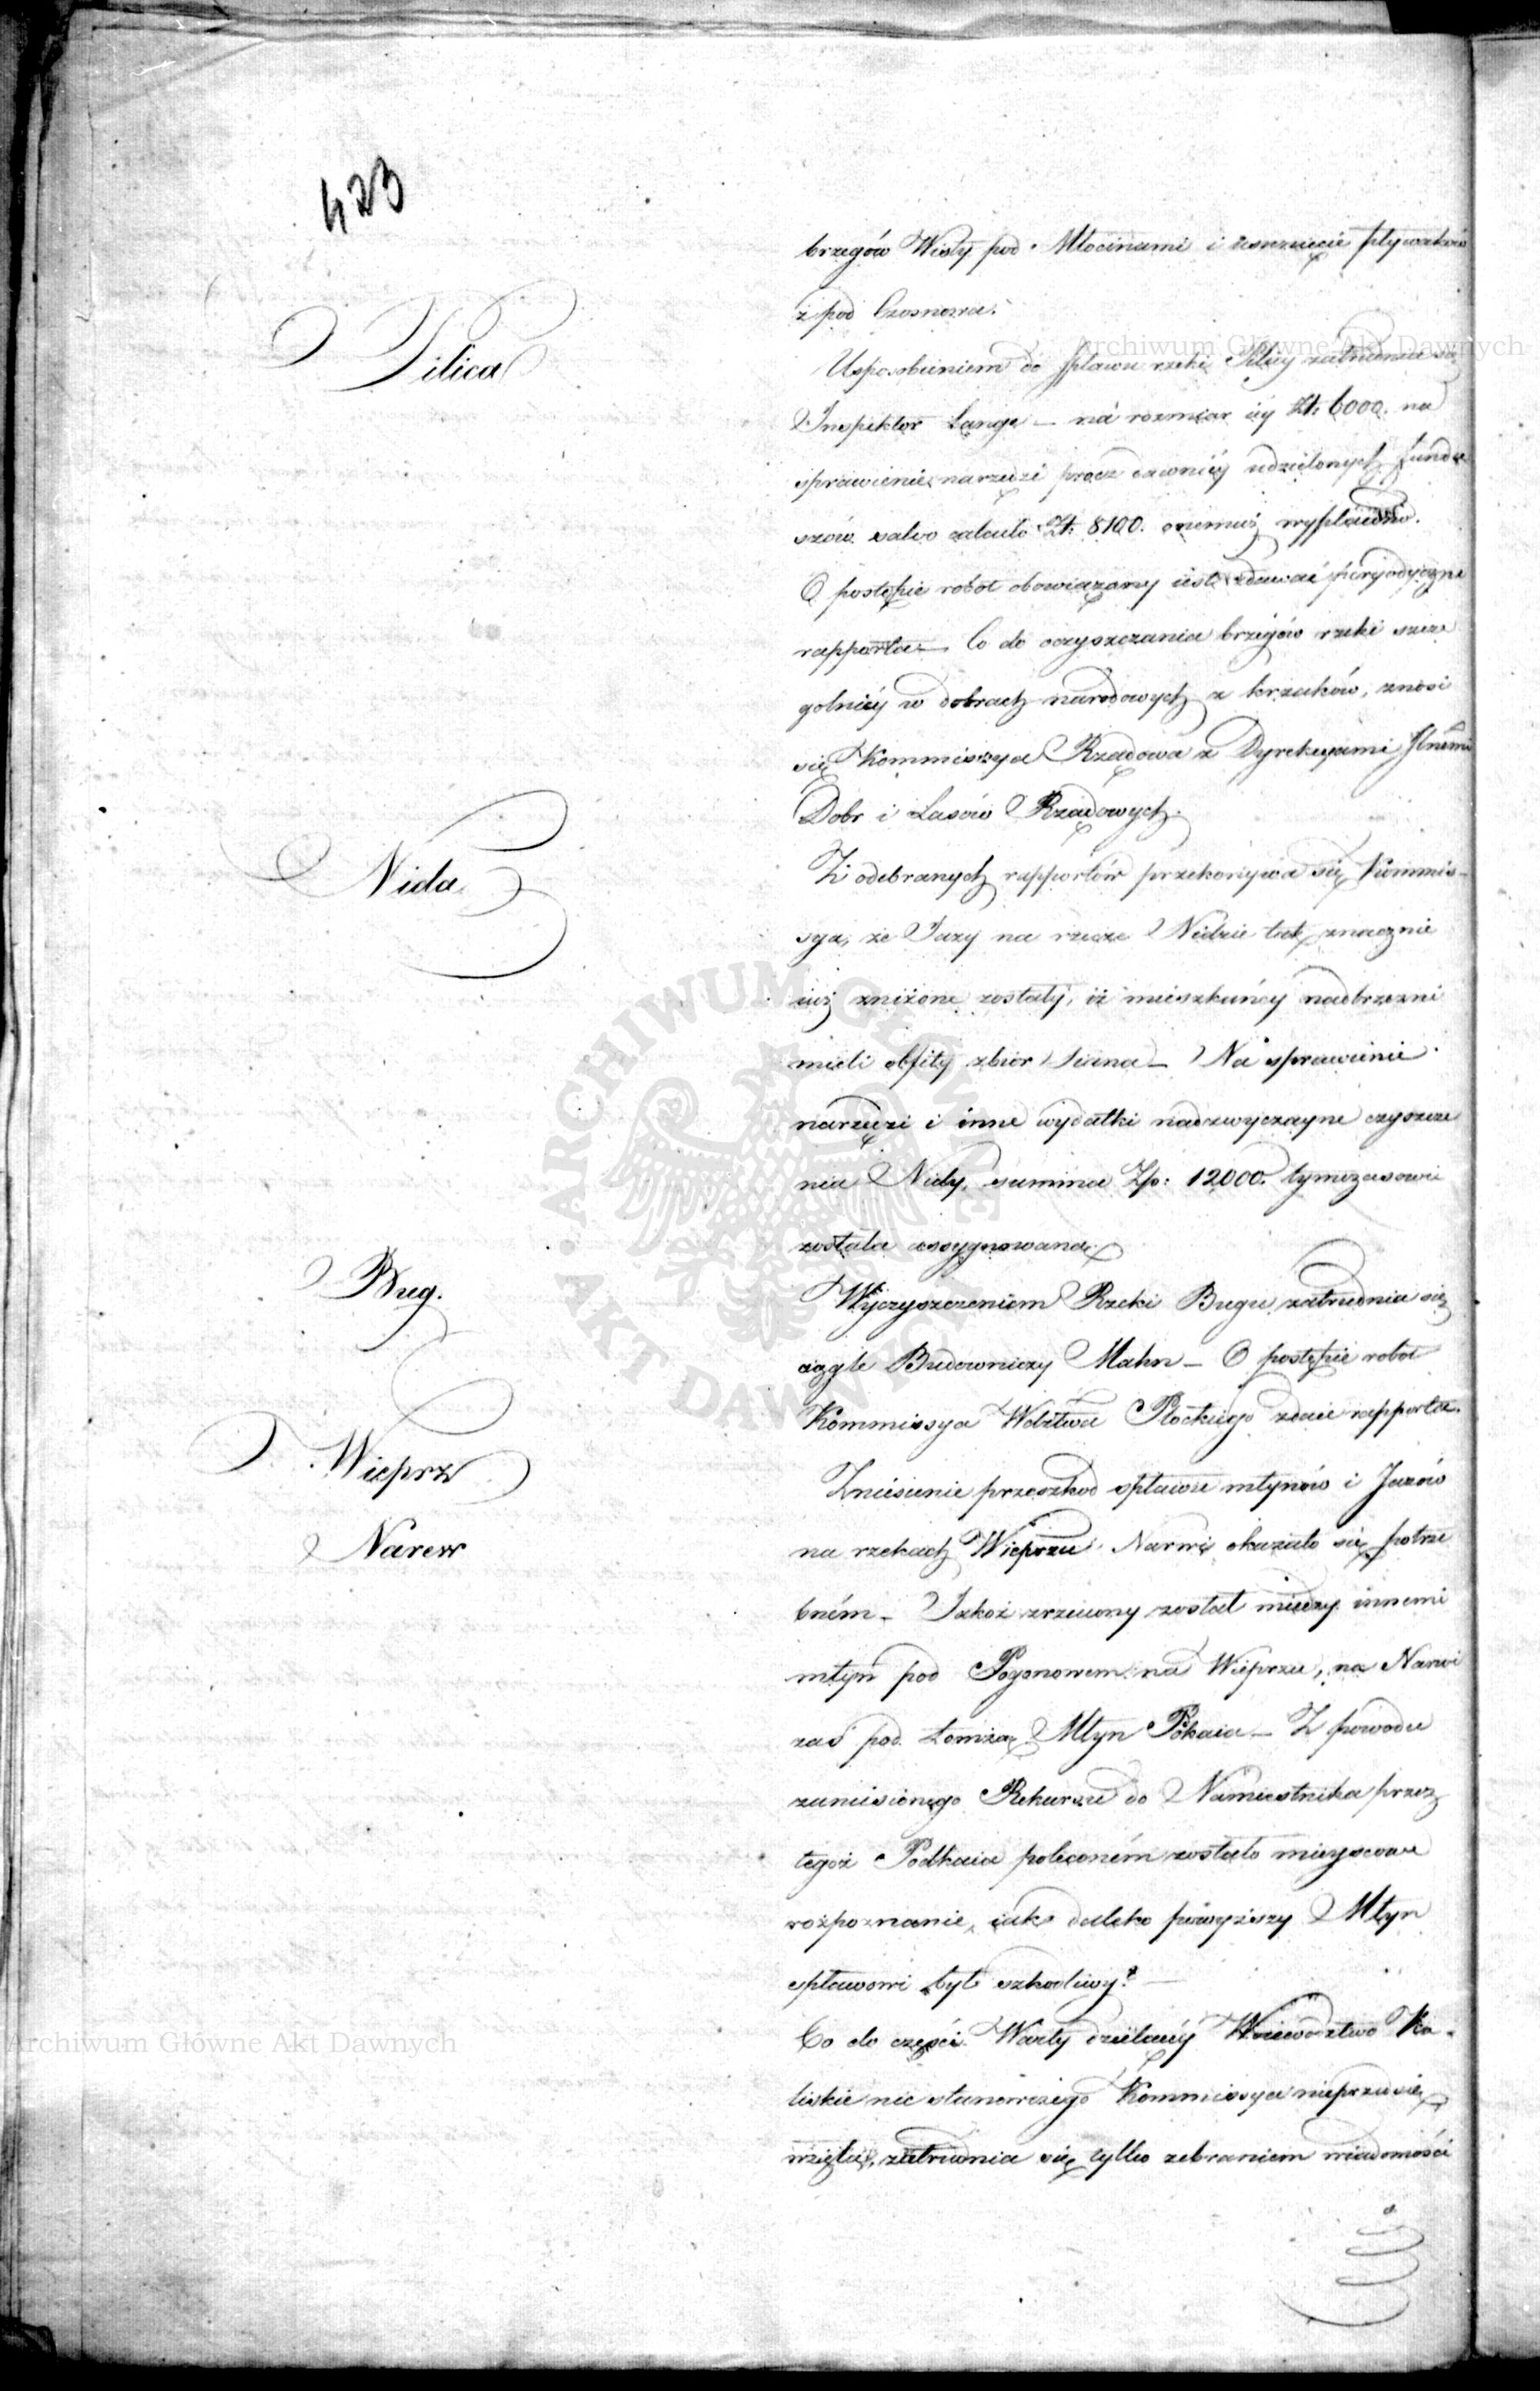 423
brzegów Wisły pod Młocinami i usunięcie pływaków
z pod Czosnowa.
Pilica
Usposobieniem do spławu rzeki Pilicy zatrudnia się
Inspektor Lange – na rozmiar iey Zł: 6000. na
sprawienie narzędzi procz dawniey udzielonych fundu
szów salvo calculo Zł: 8100. onemuż wypłacono.
O postępie robot obowiązany iest zdawać peryodyczne
rapporta – Co do oczyszczania brzegów rzeki szcze
golniey w dobrach narodowych z krzaków, znosi
się Kommissya Rządowa z Dyrekcyami Jlnemi
Dobr i Lasów Rządowych.
Nida
Z odebranych rapportów przekonywa się Kommis-
sya, że Jazy na rzece Nidzie tak znacznie
iuż zniżone zostały, iż mieszkańcy nadbrzeżni
mieli obfity zbior siana – Na sprawienie
narzędzi i inne wydatki nadzwyczayne czyszcze
nia Nidy, summa Zp: 12000. tymczasowie
została assygnowana.
Bug.
Wyczyszczeniem Rzeki Bugu zatrudnia się
ciągle Budowniczy Mahn – O postępie robot
Kommissya Wdztwa Płockiego zdaie rapporta.
Wieprz
Narew
Zniesienie przeszkod spławu młynów i Jazów
na rzekach Wieprzu Narwi okazało się potrze
bném – Jakoż zrzucony został między innemi
młyn pod Pogonowem na Wieprzu, na Narwi
zaś pod Łomżą Młyn Pokaia – Z powodu
zaniesionego Rekursu do Namiestnika przez
tegoż Podkaia poleconém zostało mieyscowe
rozpoznanie, iak daleko powyższy Młyn
spławowi był szkodliwy? –
Co do części Warty dzielącéy Woiewodztwo Ka-
liskie nic stanowczego Kommissya nieprzedsię
wzięła, zatrudnia się tylko zebraniem wiadomości
Archiwum Główne Akt Dawnych
ARCHIWUM GŁÓWNE AKT DAWNYCH
Archiwum Główne Akt Dawnych